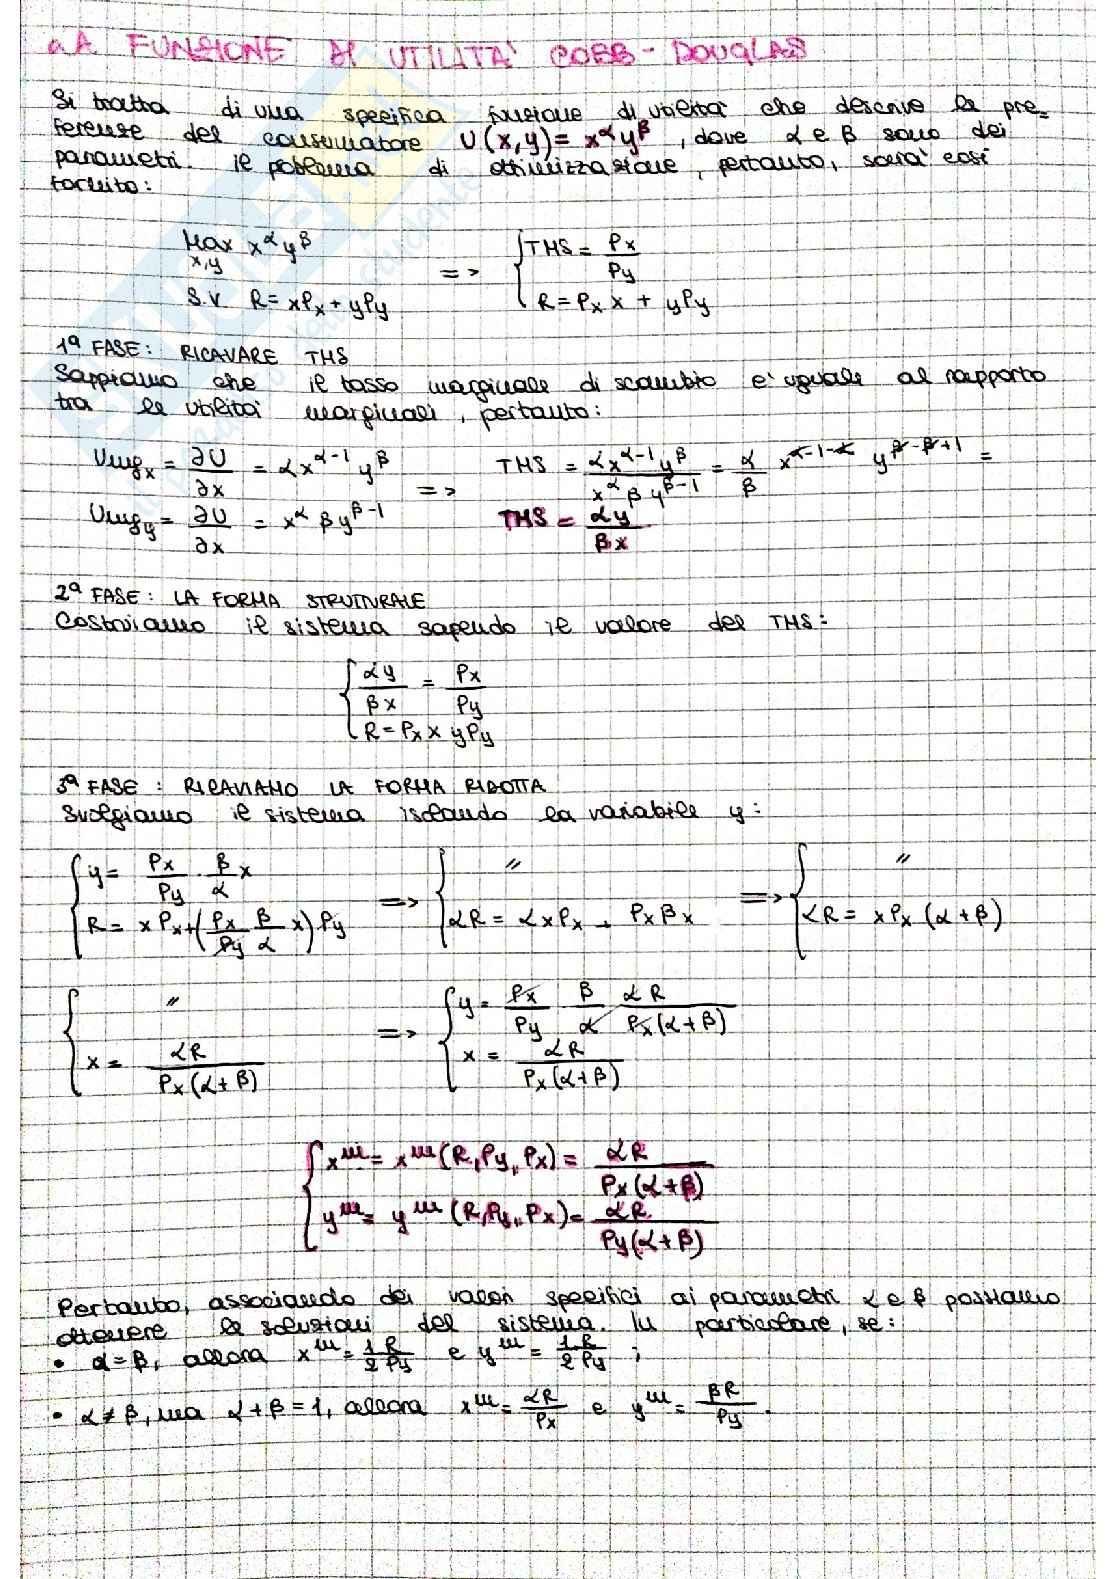 a.A FUNZIONE DI UTILITA' COBB-DOUGLAS
Si tratta di una specifica funzione di utilità che descrive le pre=
ferenze del consumatore U(x,y) = x^α y^β, dove α e β sono dei
parametri. il poblema di ottimizzazione, pertanto, sarà così
fornito:
Max x^α y^β => { TMS = Px/Py
x,y
S.V. R = xPx + yPy { R = Px x + yPy
1ª FASE: RICAVARE TMS
Sappiamo che il tasso marginale di scambio e' uguale al rapporto
tra le utilità marginali, pertanto:
Umgx = ∂U/∂x = αx^α-1 y^β => TMS = αx^α-1 y^β / x^α β y^β-1 = α/β x^α-1-α y^β-β+1 =
Umgy = ∂U/∂x = x^α β y^β-1 TMS = αy/βx
2ª FASE: LA FORMA STRUTTURALE
Costruiamo il sistema sapendo il valore del TMS:
{ αy/βx = Px/Py
R = Px x yPy
3ª FASE: RICAVIAMO LA FORMA RIDOTTA
Svolgiamo il sistema isolando la variabile y:
{ y = Px/Py · β/α x => { " => { "
R = xPx + (Px/Py β/α x) Py αR = αxPx + Pxβx αR = xPx (α+β)
{ " => { y = Px/Py β/α αR/Px(α+β)
x = αR/Px(α+β) x = αR/Px(α+β)
{ x^m = x^m (R, Py, Px) = αR/Px(α+β)
y^m = y^m (R, Py, Px) = αR/Py(α+β)
Pertanto, associando dei valori specifici ai parametri α e β possiamo
ottenere le soluzioni del sistema. In particolare, se:
• α = β, allora x^m = 1/2 R/Py e y^m = 1/2 R/Py ;
• α ≠ β, ma α + β = 1, allora x^m = αR/Px e y^m = βR/Py.